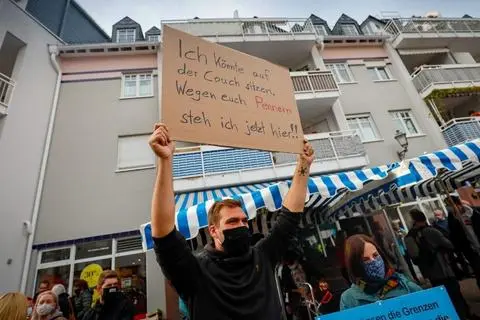 Ich könnte auf
der Couch sitzen.
Wegen euch Pennern
steh ich jetzt hier!!
die Grenzen